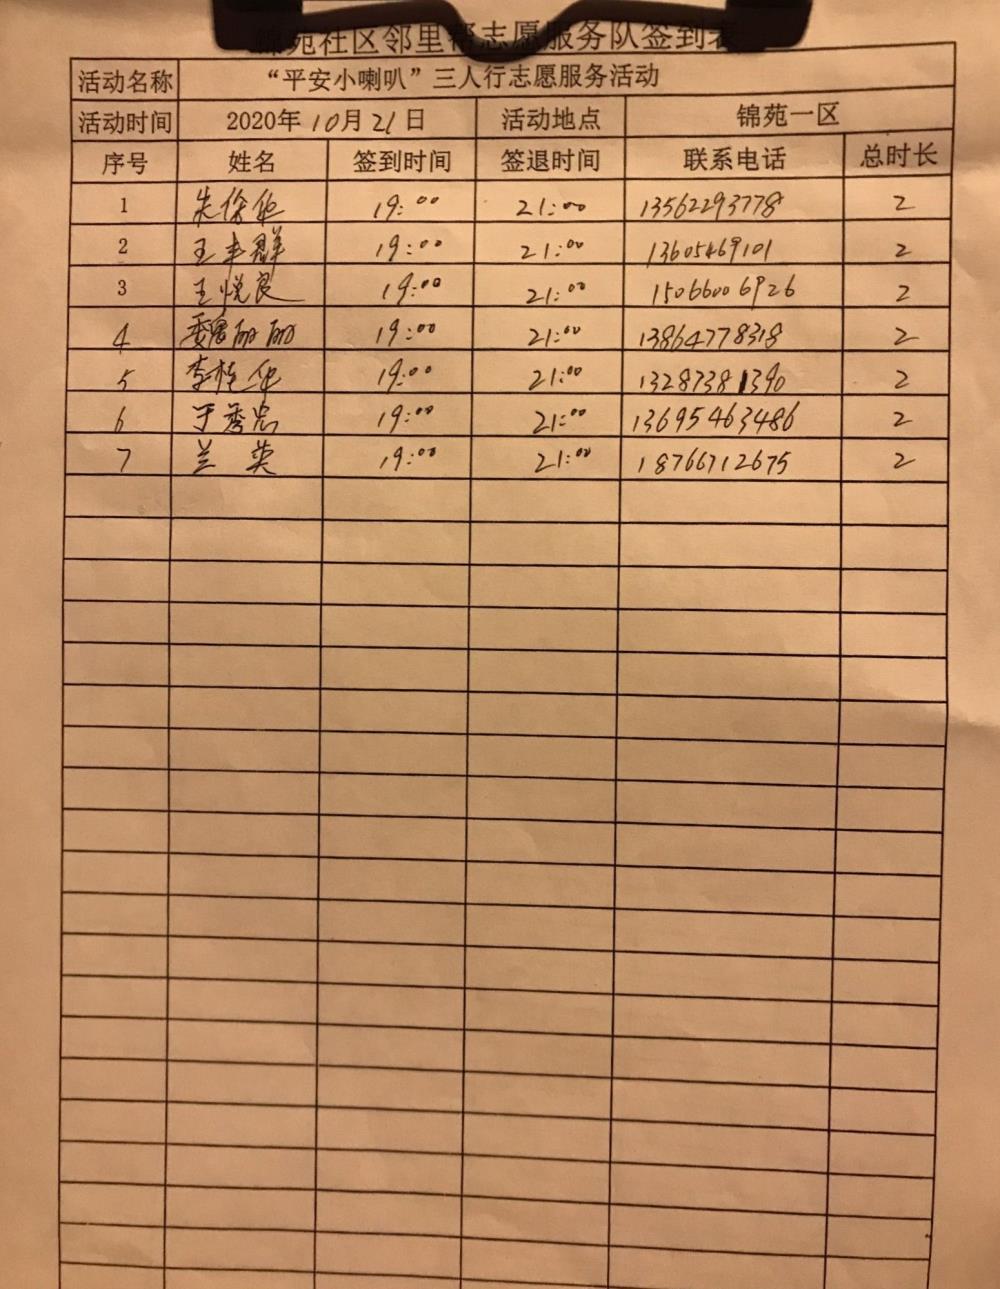 锦苑社区邻里帮志愿服务队签到表
活动名称 “平安小喇叭”三人行志愿服务活动
活动时间 2020年10月21日 活动地点 锦苑一区
序号 姓名 签到时间 签退时间 联系电话 总时长
1 朱徐华 19:00 21:00 13562293778 2
2 王丰群 19:00 21:00 13605469101 2
3 王悦良 19:00 21:00 15066006926 2
4 魏丽丽 19:00 21:00 13864778318 2
5 李桂华 19:00 21:00 13287381390 2
6 于秀忠 19:00 21:00 13695463486 2
7 兰英 19:00 21:00 18766712675 2